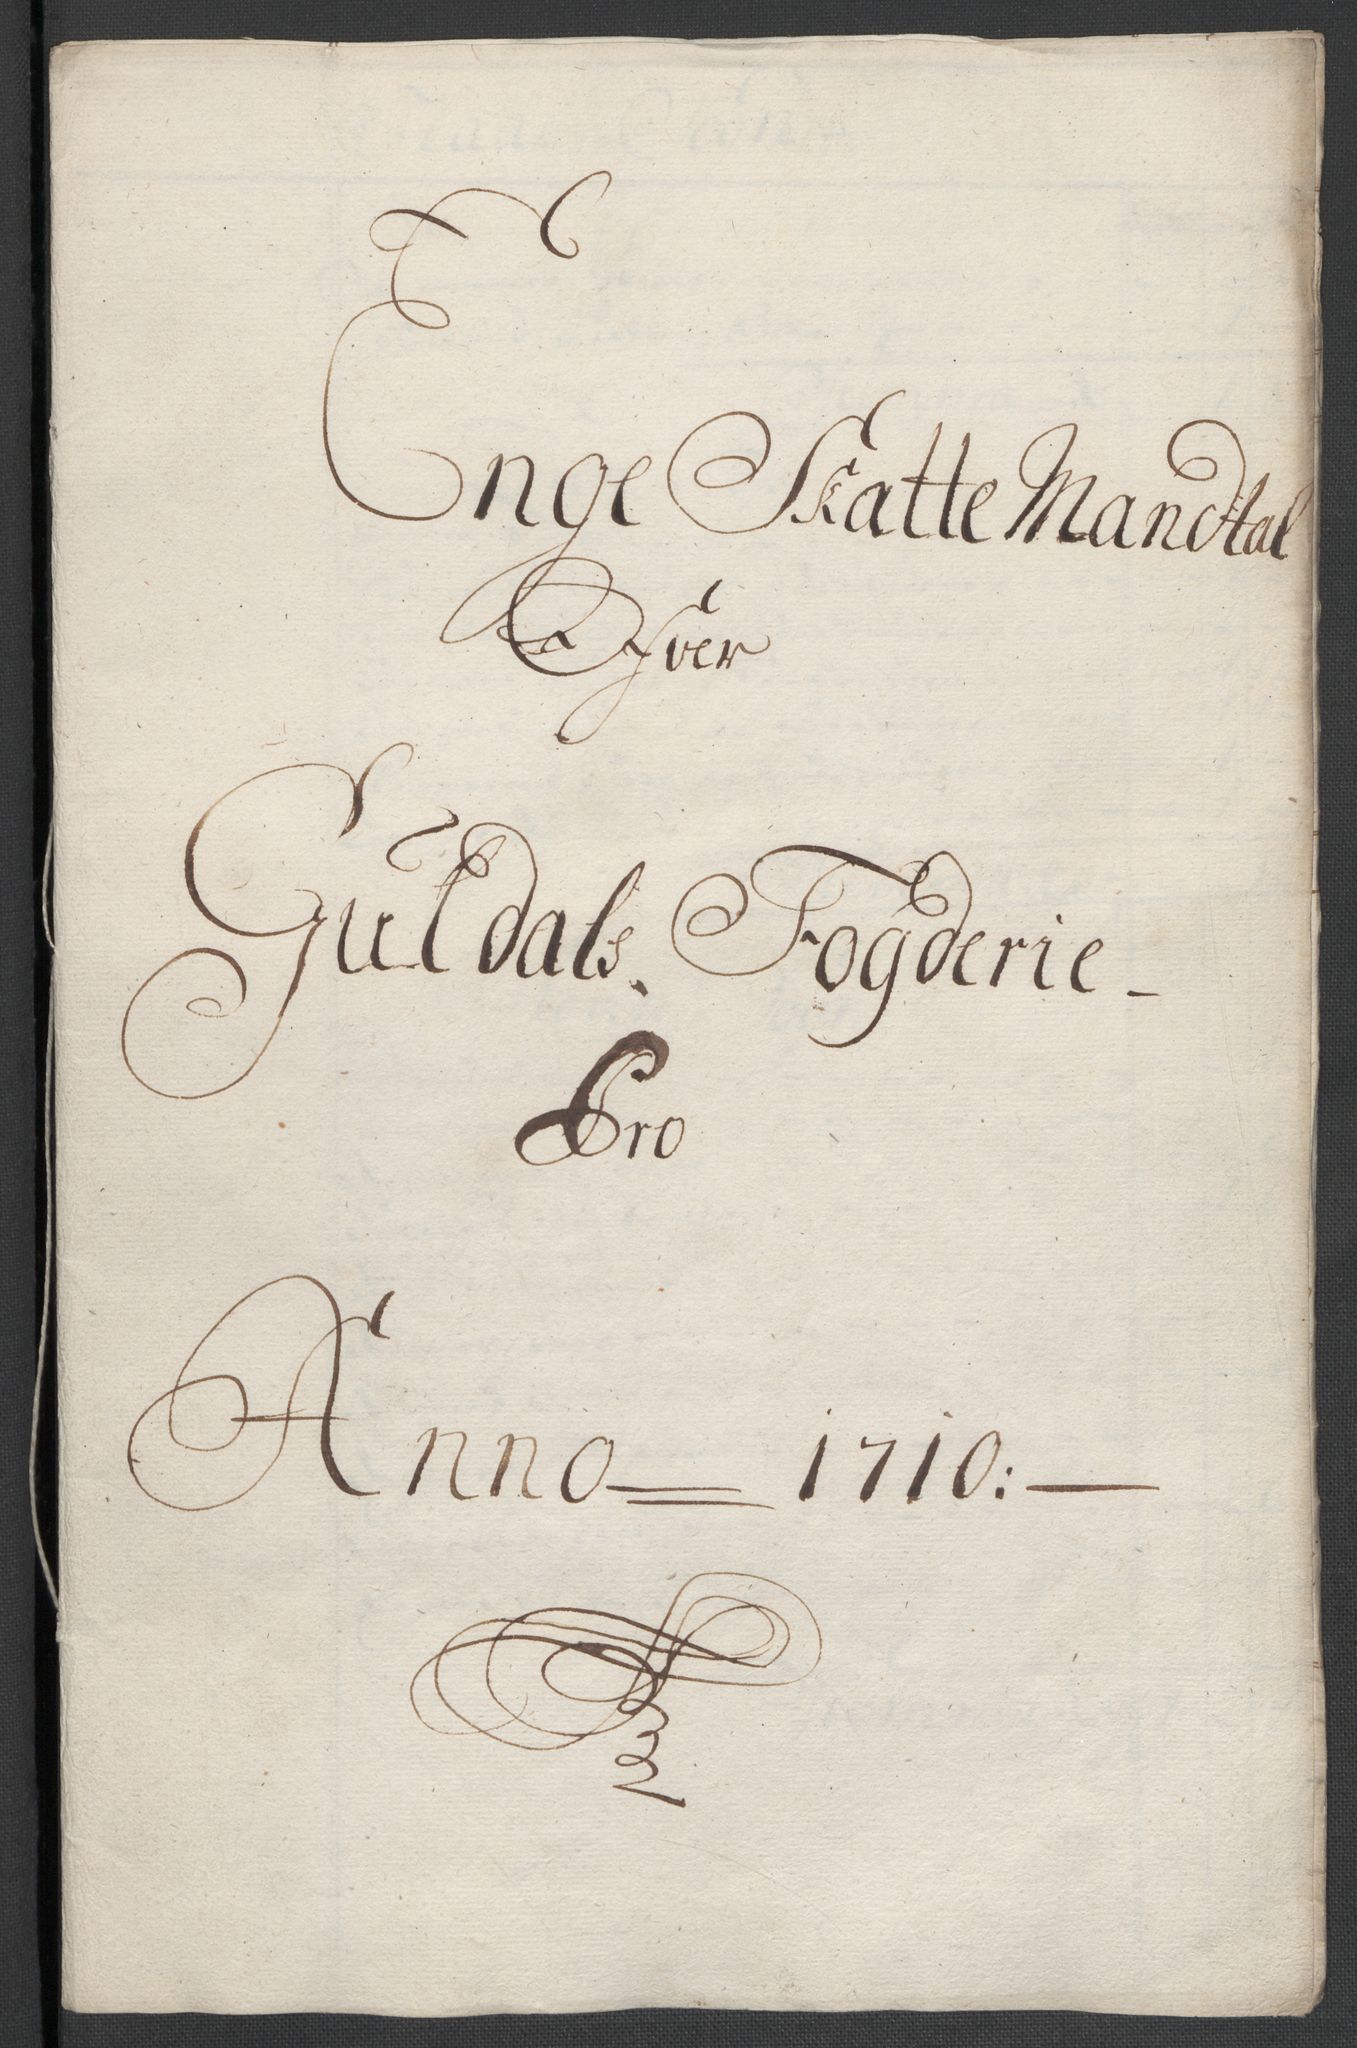 Enge Skatte Mandtal
Ofver
Guldals. Fogderie
Pro
Anno 1710: